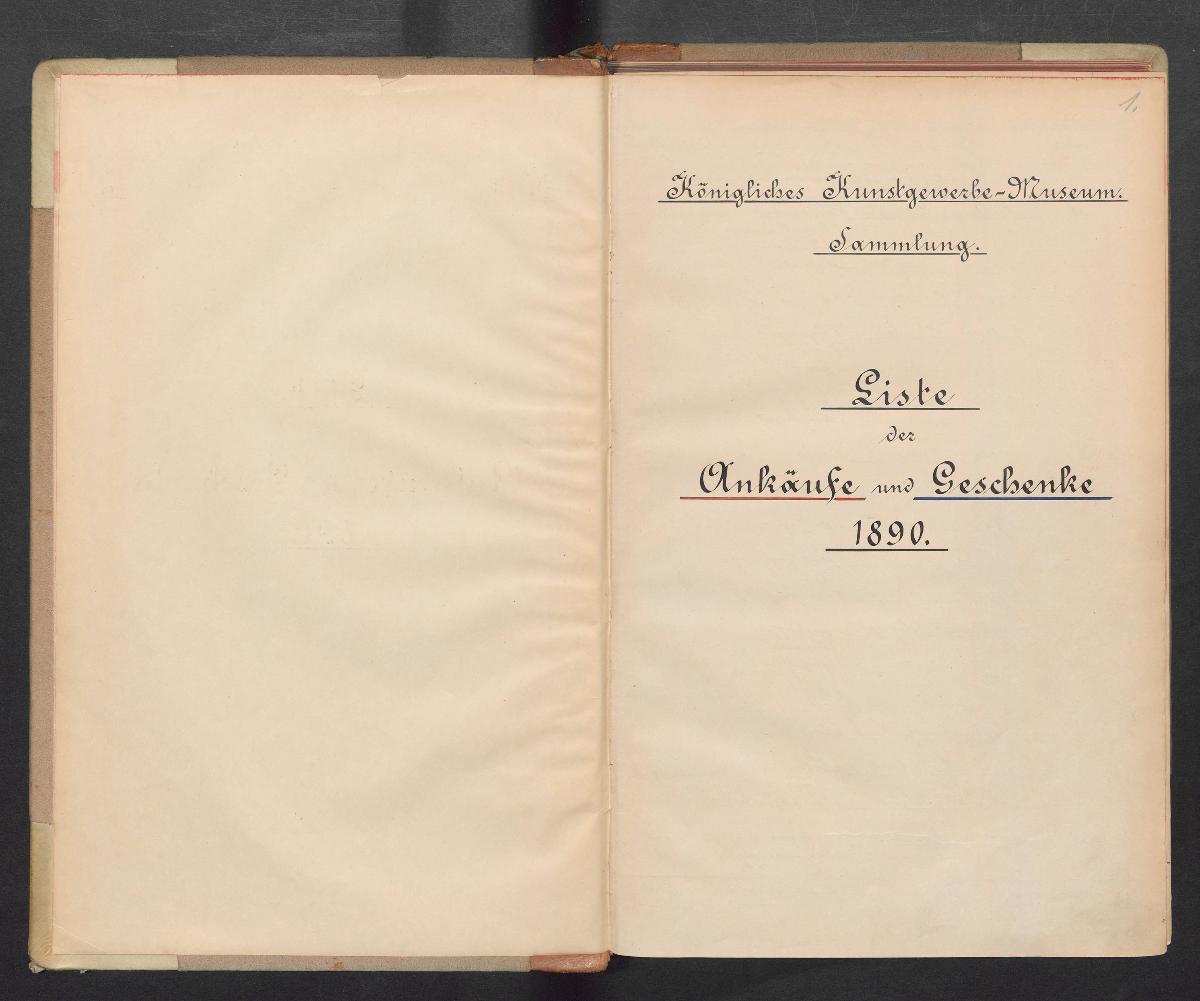 1.
Königliches Kunstgewerbe-Museum.
Sammlung.
Liste
der
Ankäufe und Geschenke
1890.